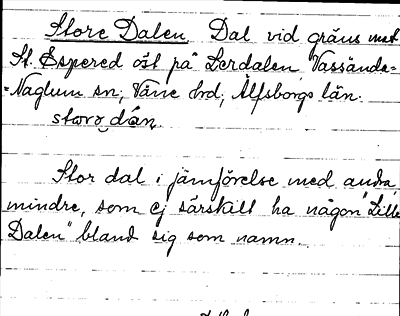 Store Dalen. Dal vid gräns mot
St. Espered öst på Lerdalen, Vassända-
=Naglum sn; Väne hrd, Älfsborgs län.
storo dán,
Stor dal i jämförelse med andra
mindre, som ej särskilt ha någon "Lille
Dalen" bland sig som namn.